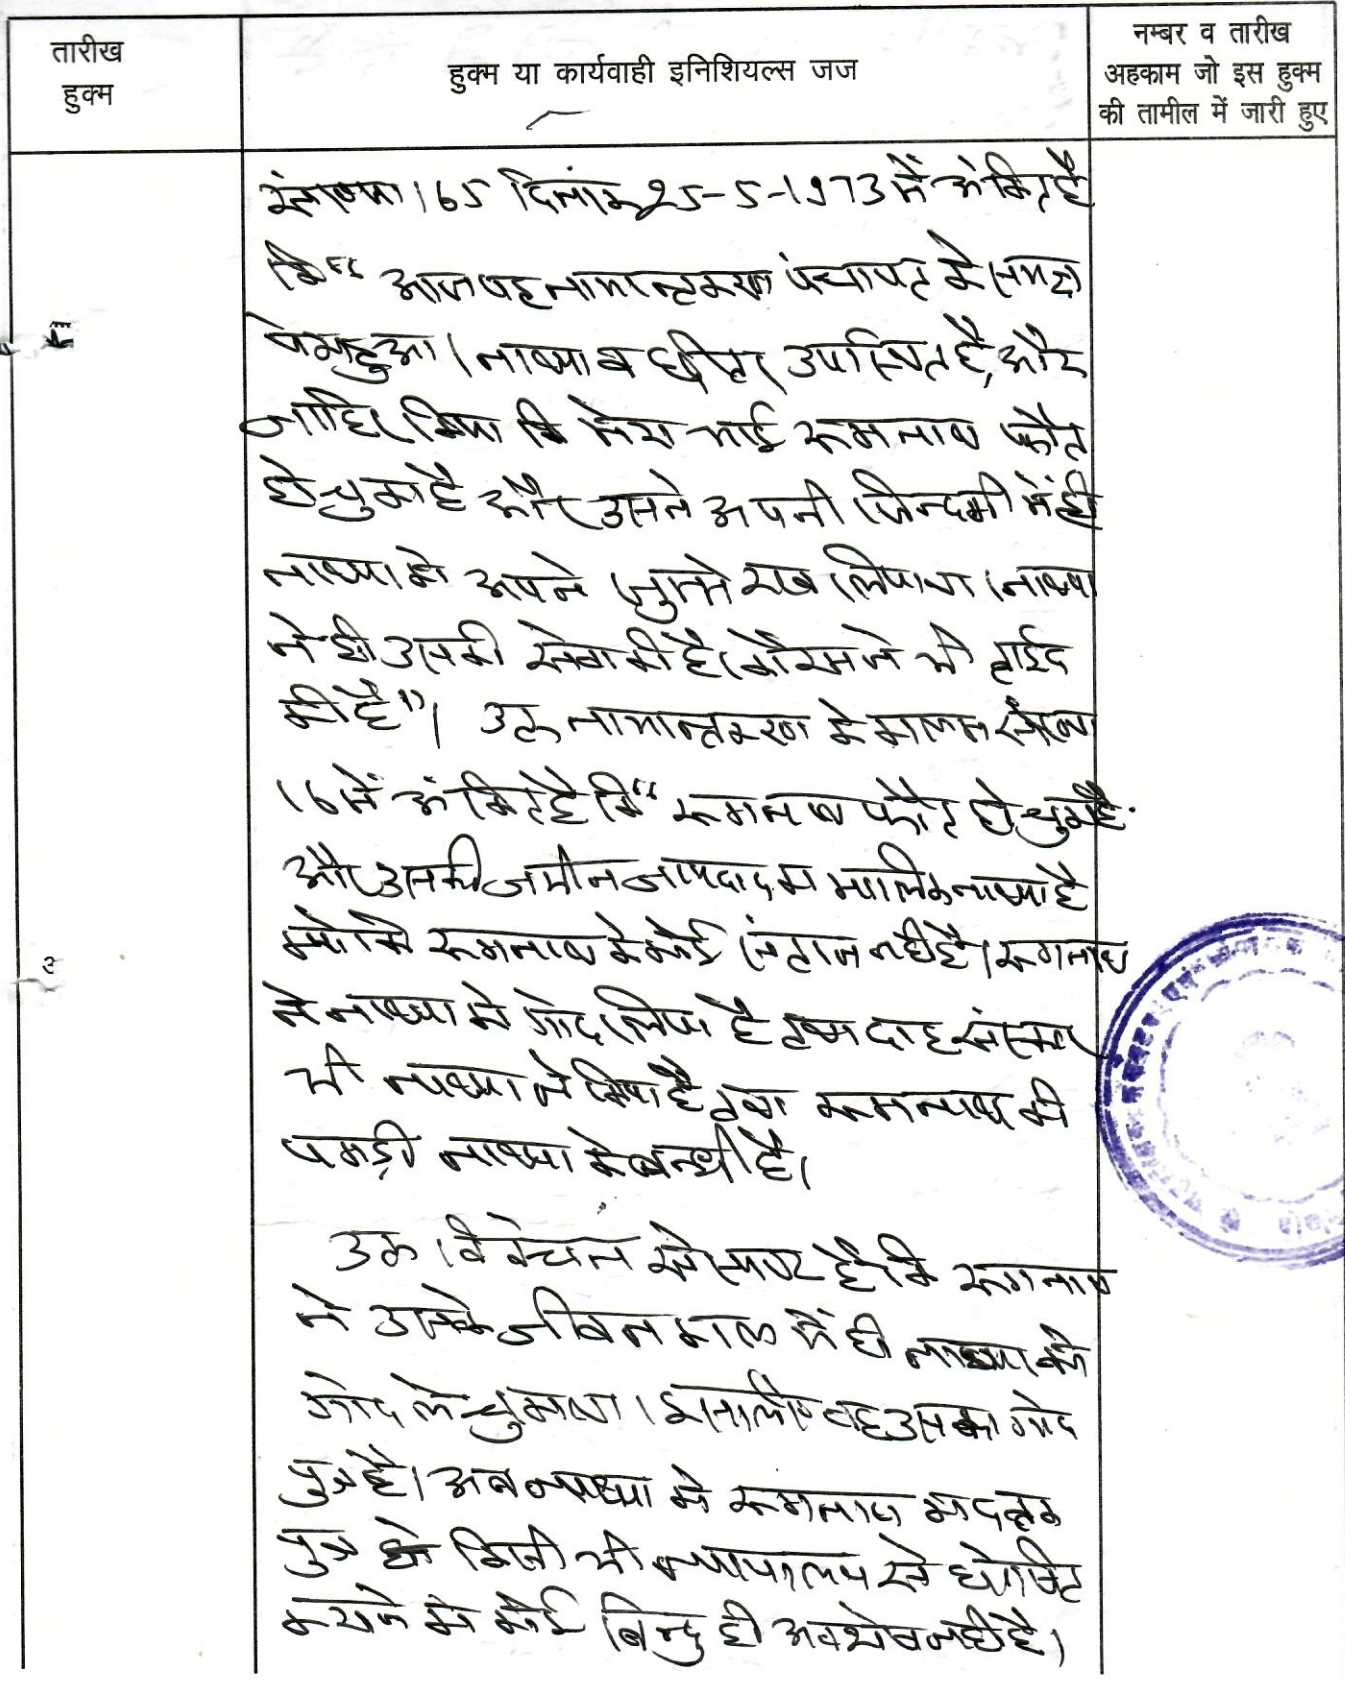 तारीख
हुक्म
हुक्म या कार्यवाही इनिशियल्स जज
नम्बर व तारीख
अहकाम जो इस हुक्म
की तामील में जारी हुए
संख्या 165 दिनांक 25-5-1973 में अंकित है
कि “ आज यह नामान्तकरण पंचायत के समक्ष
पेश हुआ। नाथ्या व उपस्थित है, और
जाहिर किया कि मेरा भाई रूगनाथ फौत
हो चुका है और उसने अपनी जिन्दगी में ही
नाथ्या को अपने रख लिया था। नाथ्या
ने ही उसकी सेवा की है। कौरम ने भी ताईद
की है”। उक्त नामान्तकरण के कालम संख्या
16 में अंकित है कि “ रूगनाथ फौत हो चुका है
और उसकी जमीन जायदाद का मालिक नाथ्या है
क्योंकि रूगनाथ के कोई संतान नहीं है। रूगनाथ
ने नाथ्या को गोद लिया है तथा दाह संस्कार
भी नाथ्या ने किया है तथा रूगनाथ की
पगड़ी नाथ्या के बन्धी है।
उक्त विवेचन से स्पष्ट है कि रूगनाथ
ने उसके जीवन काल में ही नाथ्या को
गोद ले चुका था। इसलिए वह उसका गोद
पुत्र है। अब नाथ्या को रूगनाथ का दत्तक
पुत्र किसी भी न्यायालय से घोषित
कराने का कोई बिन्दु ही अवशेष नहीं है।